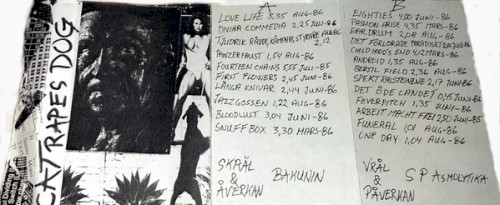 CAT RAPES DOG
A
LOVE LIFE 3,35 AUG-86
DIVINA COMMEDIA 2,25 JULI-86
2,12
PANZERFAUST 1,54 AUG-86
FOURTEEN CHAINS 5,55 JULI-85
FIRST FLOWERS 2,45 JUNI-86
LÅNGA KNIVAR 2,44 JUNI-86
JAZZGOSSEN 1,22 AUG-86
BLOODLUST 3,04 JUNI-86
SNUFF BOX 3,30 MARS-86
SKRÄL & ÅVERKAN
BAKUNIN
B
EIGHTIES 4,00 JUNI-86
PASSION ARISE 4,35 MARS-86
EARDRUM 2,08 AUG-86
DET FÖRLORADE PARADISET
CHILDHOOD'S END 4,02 MARS-86
ANDROID 1,35 AUG-86
BERYLL FIELD 2,36 AUG-86
2,17 JUNI-86
DET ÖDE LANDET 0,45 JUNI-86
FEVERPITCH 1,35 JUNI-86
ARBEIT MACHT FREI 2,50 JUNI-85
FUNERAL 1,01 AUG-86
ONE DAY 1,04 AUG-86
VRÅL & PÅVERKAN
SP ASMOLYTIKA